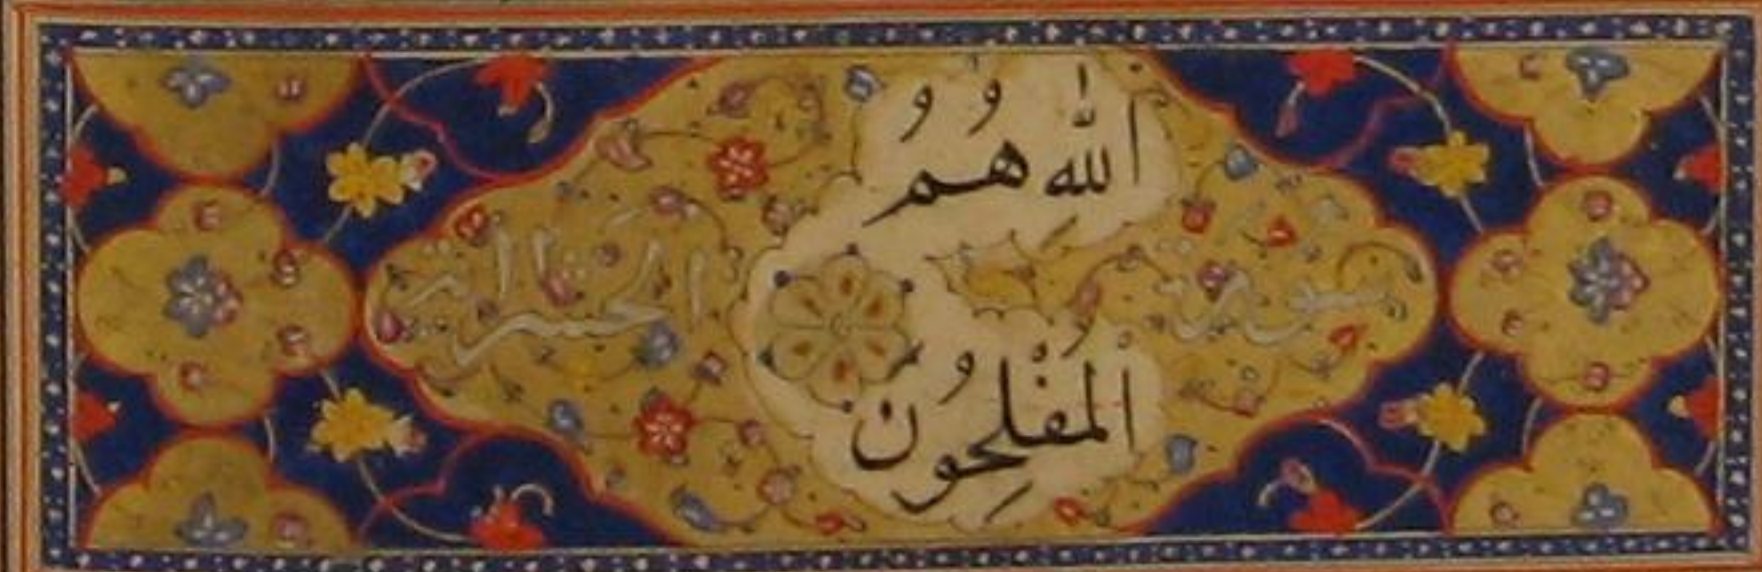 اللّٰهِ هُمُ
سورة الحشر
الْمُفْلِحُونَ